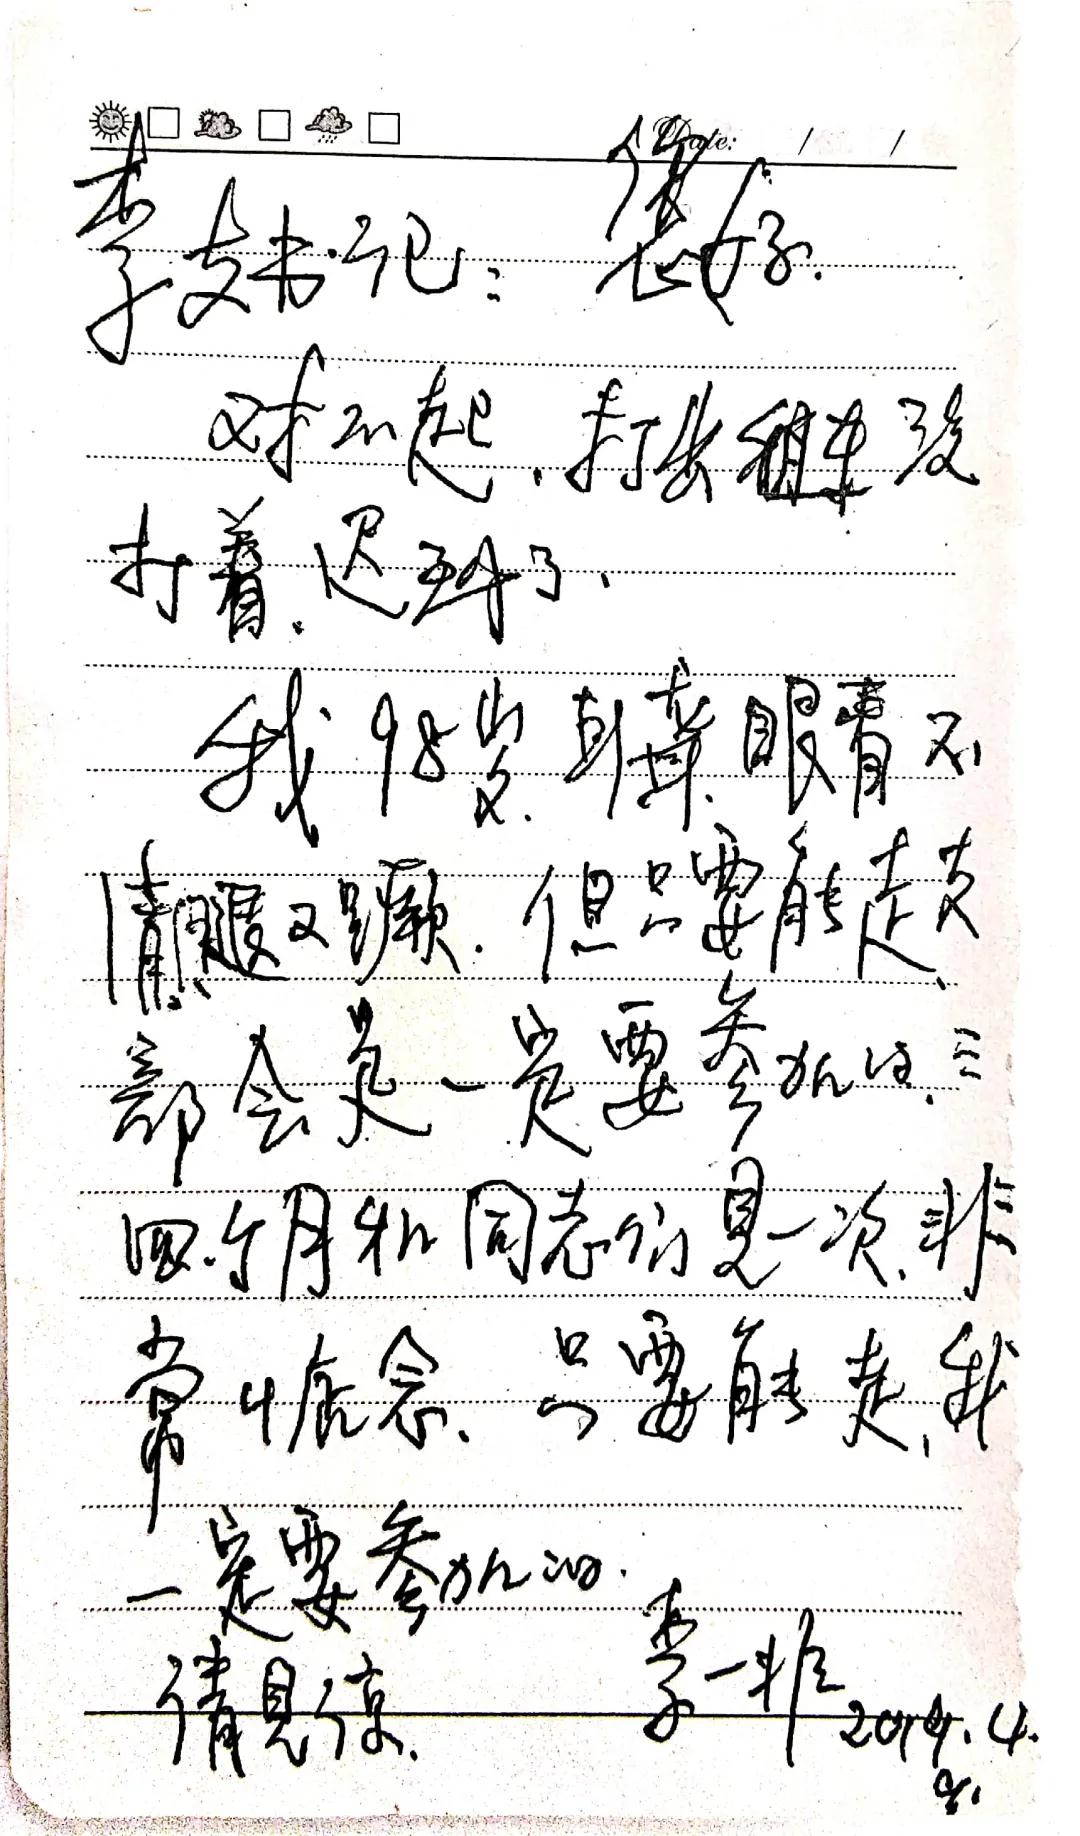 Date: / /
李支书记: 您好.
对不起.打出租车没
打着.迟到了.
我98岁.耳聋.眼睛不
清.腿又瘸.但只要能走,支
部会是一定要参加的.三
四个月和同志们见一次,非
常惦念.只要能走,我
一定要参加的.
请见谅.
李一非
2019.4.